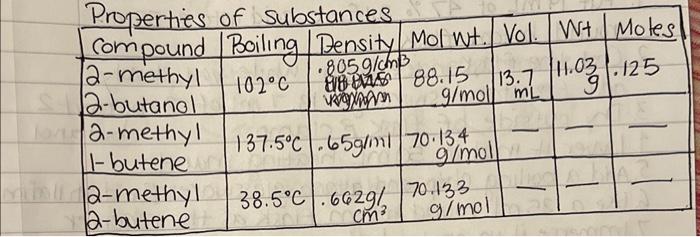 Properties of substances
Compound Boiling Density Mol Wt. Vol. Wt Moles
2-methyl 2-butanol 102°C .805g/cm3 88.15 g/mol 13.7 mL 11.03 g .125
2-methyl 1-butene 137.5°C .65g/ml 70.134 g/mol — — —
2-methyl 2-butene 38.5°C .662g/cm³ 70.133 g/mol — — —